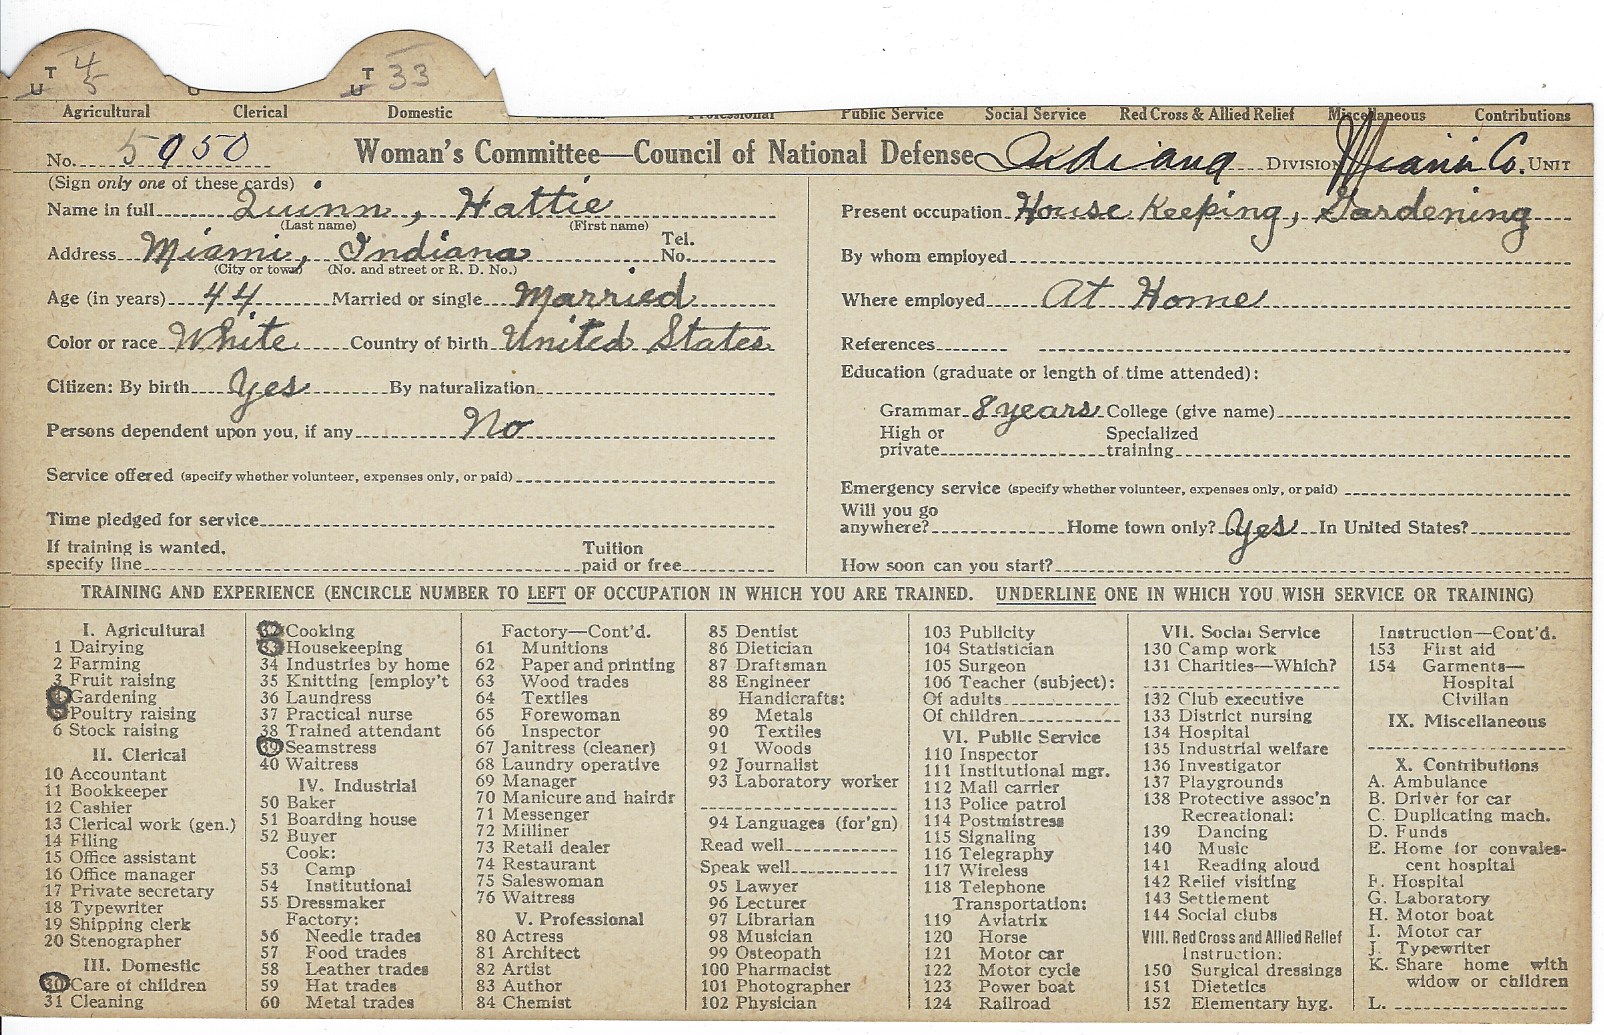 T 4 T 33
U 5 U
Agricultural Clerical Domestic Professional Public Service Social Service Red Cross & Allied Relief Miscellaneous Contributions
No. 5950 Woman's Committee—Council of National Defense Indiana DIVISION Miami Co. UNIT
(Sign only one of these cards)
Name in full Quinn, Hattie
(Last name) (First name)
Address Miami, Indiana Tel. No.
(City or town) (No. and street or R. D. No.)
Age (in years) 44 Married or single Married
Color or race White Country of birth United States
Citizen: By birth Yes By naturalization
Persons dependent upon you, if any No
Service offered (specify whether volunteer, expenses only, or paid)
Time pledged for service
If training is wanted, specify line Tuition paid or free
Present occupation House Keeping, Gardening
By whom employed
Where employed At Home
References
Education (graduate or length of time attended):
Grammar 8 years College (give name)
High or private Specialized training
Emergency service (specify whether volunteer, expenses only, or paid)
Will you go anywhere? Home town only? Yes In United States?
How soon can you start?
TRAINING AND EXPERIENCE (ENCIRCLE NUMBER TO LEFT OF OCCUPATION IN WHICH YOU ARE TRAINED. UNDERLINE ONE IN WHICH YOU WISH SERVICE OR TRAINING)
I. Agricultural
1 Dairying
2 Farming
3 Fruit raising
4 Gardening
5 Poultry raising
6 Stock raising
II. Clerical
10 Accountant
11 Bookkeeper
12 Cashier
13 Clerical work (gen.)
14 Filing
15 Office assistant
16 Office manager
17 Private secretary
18 Typewriter
19 Shipping clerk
20 Stenographer
III. Domestic
30 Care of children
31 Cleaning
32 Cooking
33 Housekeeping
34 Industries by home
35 Knitting [employ't
36 Laundress
37 Practical nurse
38 Trained attendant
39 Seamstress
40 Waitress
IV. Industrial
50 Baker
51 Boarding house
52 Buyer
Cook:
53 Camp
54 Institutional
55 Dressmaker
Factory:
56 Needle trades
57 Food trades
58 Leather trades
59 Hat trades
60 Metal trades
Factory—Cont'd.
61 Munitions
62 Paper and printing
63 Wood trades
64 Textiles
65 Forewoman
66 Inspector
67 Janitress (cleaner)
68 Laundry operative
69 Manager
70 Manicure and hairdr
71 Messenger
72 Milliner
73 Retail dealer
74 Restaurant
75 Saleswoman
76 Waitress
V. Professional
80 Actress
81 Architect
82 Artist
83 Author
84 Chemist
85 Dentist
86 Dietician
87 Draftsman
88 Engineer
Handicrafts:
89 Metals
90 Textiles
91 Woods
92 Journalist
93 Laboratory worker
94 Languages (for'gn)
Read well
Speak well
95 Lawyer
96 Lecturer
97 Librarian
98 Musician
99 Osteopath
100 Pharmacist
101 Photographer
102 Physician
103 Publicity
104 Statistician
105 Surgeon
106 Teacher (subject):
Of adults
Of children
VI. Public Service
110 Inspector
111 Institutional mgr.
112 Mail carrier
113 Police patrol
114 Postmistress
115 Signaling
116 Telegraphy
117 Wireless
118 Telephone
Transportation:
119 Aviatrix
120 Horse
121 Motor car
122 Motor cycle
123 Power boat
124 Railroad
VII. Social Service
130 Camp work
131 Charities—Which?
132 Club executive
133 District nursing
134 Hospital
135 Industrial welfare
136 Investigator
137 Playgrounds
138 Protective assoc'n
Recreational:
139 Dancing
140 Music
141 Reading aloud
142 Relief visiting
143 Settlement
144 Social clubs
VIII. Red Cross and Allied Relief
Instruction:
150 Surgical dressings
151 Dietetics
152 Elementary hyg.
Instruction—Cont'd.
153 First aid
154 Garments—
Hospital
Civilian
IX. Miscellaneous
X. Contributions
A. Ambulance
B. Driver for car
C. Duplicating mach.
D. Funds
E. Home for convales-
cent hospital
F. Hospital
G. Laboratory
H. Motor boat
I. Motor car
J. Typewriter
K. Share home with
widow or children
L.